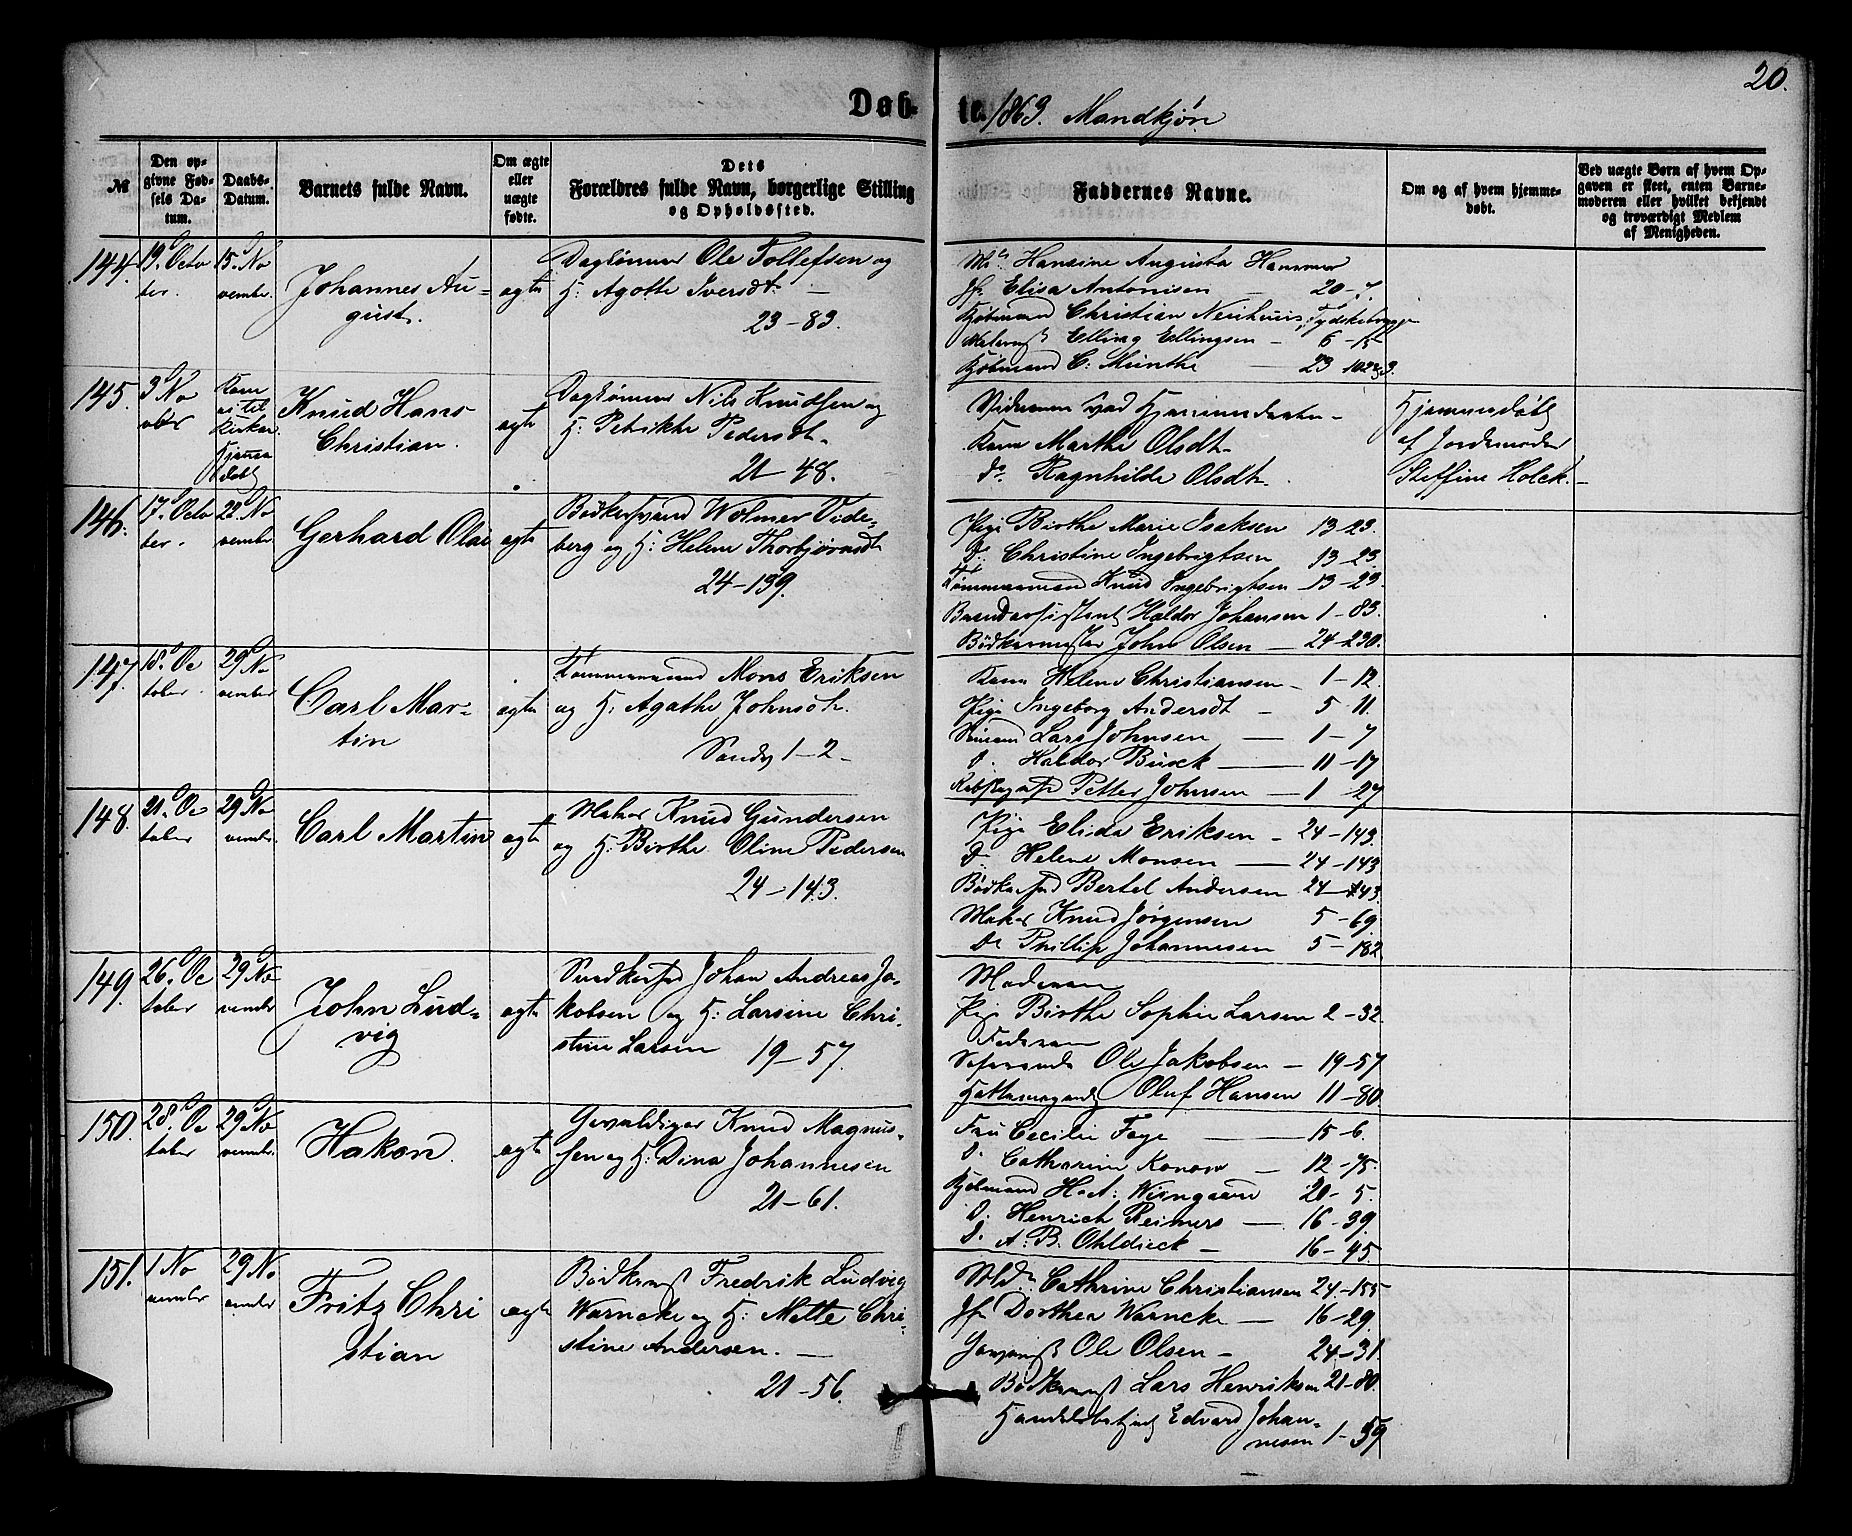 20.
Døbte 1863. Mandkjøn
№
Den opgivne Fødsels Datum.
Daabs-Datum.
Barnets fulde Navn.
Om ægte eller uægte fødte.
Dets Forældres fulde Navn, borgerlige Stilling og Opholdssted.
Faddernes Navne.
Om og af hvem hjemmedøbt.
Ved uægte Børn af hvem Opgaven er skeet, enten Barnemoderen eller hvilket bekjendt og troværdigt Medlem af Menigheden.
144. 19. Octo 15. No
ber. vembr.
Johannes Au-
gust.
ægte
Dagtømmer Ole Tollefsen og
H: Agathe Iversdt. —
23-83.
Hansine Augusta Hammer
Jfr Elisa Antonisen — 20-7.
Kjøbmand Christian Neuhuus, Tydskebryggen
Elling Ellingsen - 6-15
Kjøbmand C. Münthe
145. 3 No
vbr
Kom
ei til
Kirken.
Hjemme
døbt
Knud Hans
Christian.
ægte
Dagtømmer Nils Knudsen og
H: Petrikke Pedersdt.
21-48.
Vidnerne ved Hjemmedaaben -
Kone Marthe Olsdt.
Do. Ragnhilde Olsdt.
Hjemmedøbt
af Jordemoder
Steffine Holck.-
146. 17. Octo 22. No
ber. vembr.
Gerhard Olai
ægte
Bødkersvend Wolmer Vide-
berg og H: Helene Thorbjørnsdt
24-139.
Pige Birthe Marie Isaksen 13-23.
D. Christine Ingebrigtsen 13-23.
Tømmermand Knud Ingebrigtsen -13-23.
Haldor Johansen 1-83.
Bødkermester John Olsen — 24-230.
147. 18. Oc 29 No
tober. vember
Carl Mar-
tin
ægte
Tømmermand Mons Eriksen
og H: Agathe Johnsdt.
Sandv 1-2-
Kone Helene Christiansen - 1-12.
Pige Ingeborg Andersdt - 5-11.
Lars Johnsen — 1-7
D. Haldor Busck — 11-17
Petter Johnsen — 1-27
148. 21. Oc 29 No
tober vembr.
Carl Martin
ægte
Maker Knud Gundersen
og H: Birthe Oline Pedersen
24-143.
Pige Elida Eriksen - 24-143.
D. Helene Monsen — 24-143
Bødkersvd Bertel Andersen 24-143.
Maker Knud Jørgensen 5-69.
Do Phillip Johannesen 5-182
149. 26. Oc 29 No
tober vembr
John Lud-
vig
ægte
Snedkersvd Johan Andreas Ja-
kobsen og H: Larsine Chri-
stine Larsen 19-57.
Moderen
Pige Birthe Sophie Larsen 2-32.
Faderen
Ole Jakobsen — 19-57
Oluf Hansen 11-80.
150. 28. Oc 29 No
tober vembr.
Hakon.
ægte
Gevaldiger Knud Magnus-
sen og H: Dina Johannesen
21-61.
Fru Cecilie Faye — 15-6.
D. Catharine Konow — 12-75.
Kjøbmand H. A: Wisngaard 20-5.
D. Henrich Reimers — 16-39.
D. A. B. Ohldieck - 16-45.
151. 1 No 29 No
vember vembr
Fritz Chri
stian
ægte
Bødkermst Fredrik Ludvig
Warncke og H: Mette Chri-
stine Andersen. —
21-56.
Md. Cathrine Christiansen 24-155
Jfr Dorthea Warncke — 16-29.
Ole Olsen - 24-31.
Bødkermst Lars Henriksen 21-80.
Handelsbetjent Edvard Johan-
nesen 1-59